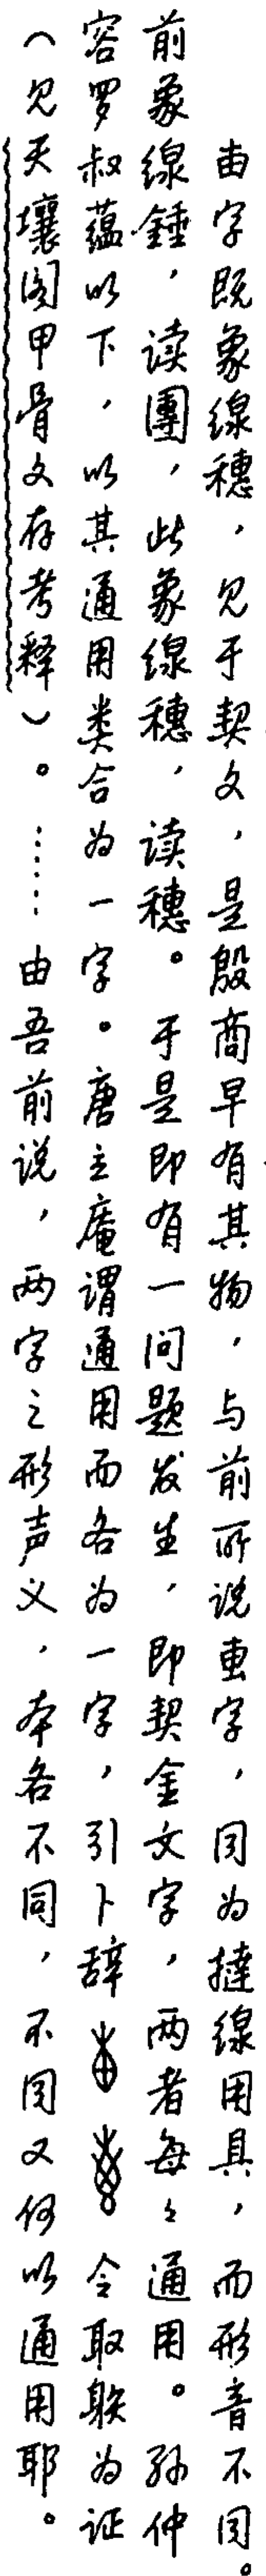 由字既象線穗，见于契文，是殷商早有其物，与前所说叀字，同为撻線用具，而形音不同。
前象線錘，读團，此象線穗，读穗。于是即有一问题发生，即契金文字，两者每々通用。孙仲
容罗叔蕴以下，以其通用类合为一字。唐立庵谓通用而各为一字，引卜辞 令取 为证
（见天壤阁甲骨文存考释）。……由吾前说，两字之形声义，本各不同，不同又何以通用耶。